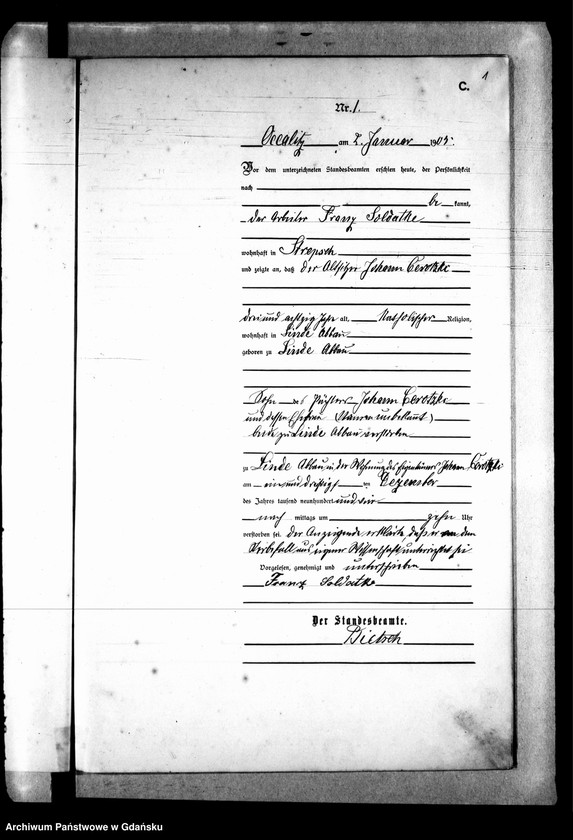 1
C.
Nr. 1.
Occalitz am 2. Januar 1905.
Vor dem unterzeichneten Standesbeamten erschien heute, der Persönlichkeit
nach
be kannt,
der Arbeiter Franz Soldatke
wohnhaft in Strepsch
und zeigte an, daß der Altsitzer Johann Cerotzki
drei und achtzig Jahr alt, Katholischer Religion,
wohnhaft in Linde Abbau
geboren zu Linde Abbau
Sohn des Johann Cerotzki
und dessen Ehefrau (Namen unbekannt)
beide zu Linde Abbau verstorben
zu Linde Abbau, in der Wohnung des Eigentümers Johann Cerotzki
am ein und dreißigsten Dezember
des Jahres tausend neunhundert und vier
nach mittags um zehn Uhr
verstorben sei. Der Anzeigende erklärte, daß er von dem
Sterbefall aus eigener Wissenschaft unterrichtet sei
Vorgelesen, genehmigt und unterschrieben
Franz Soldatke
Der Standesbeamte.
Dietsch
Archiwum Państwowe w Gdańsku